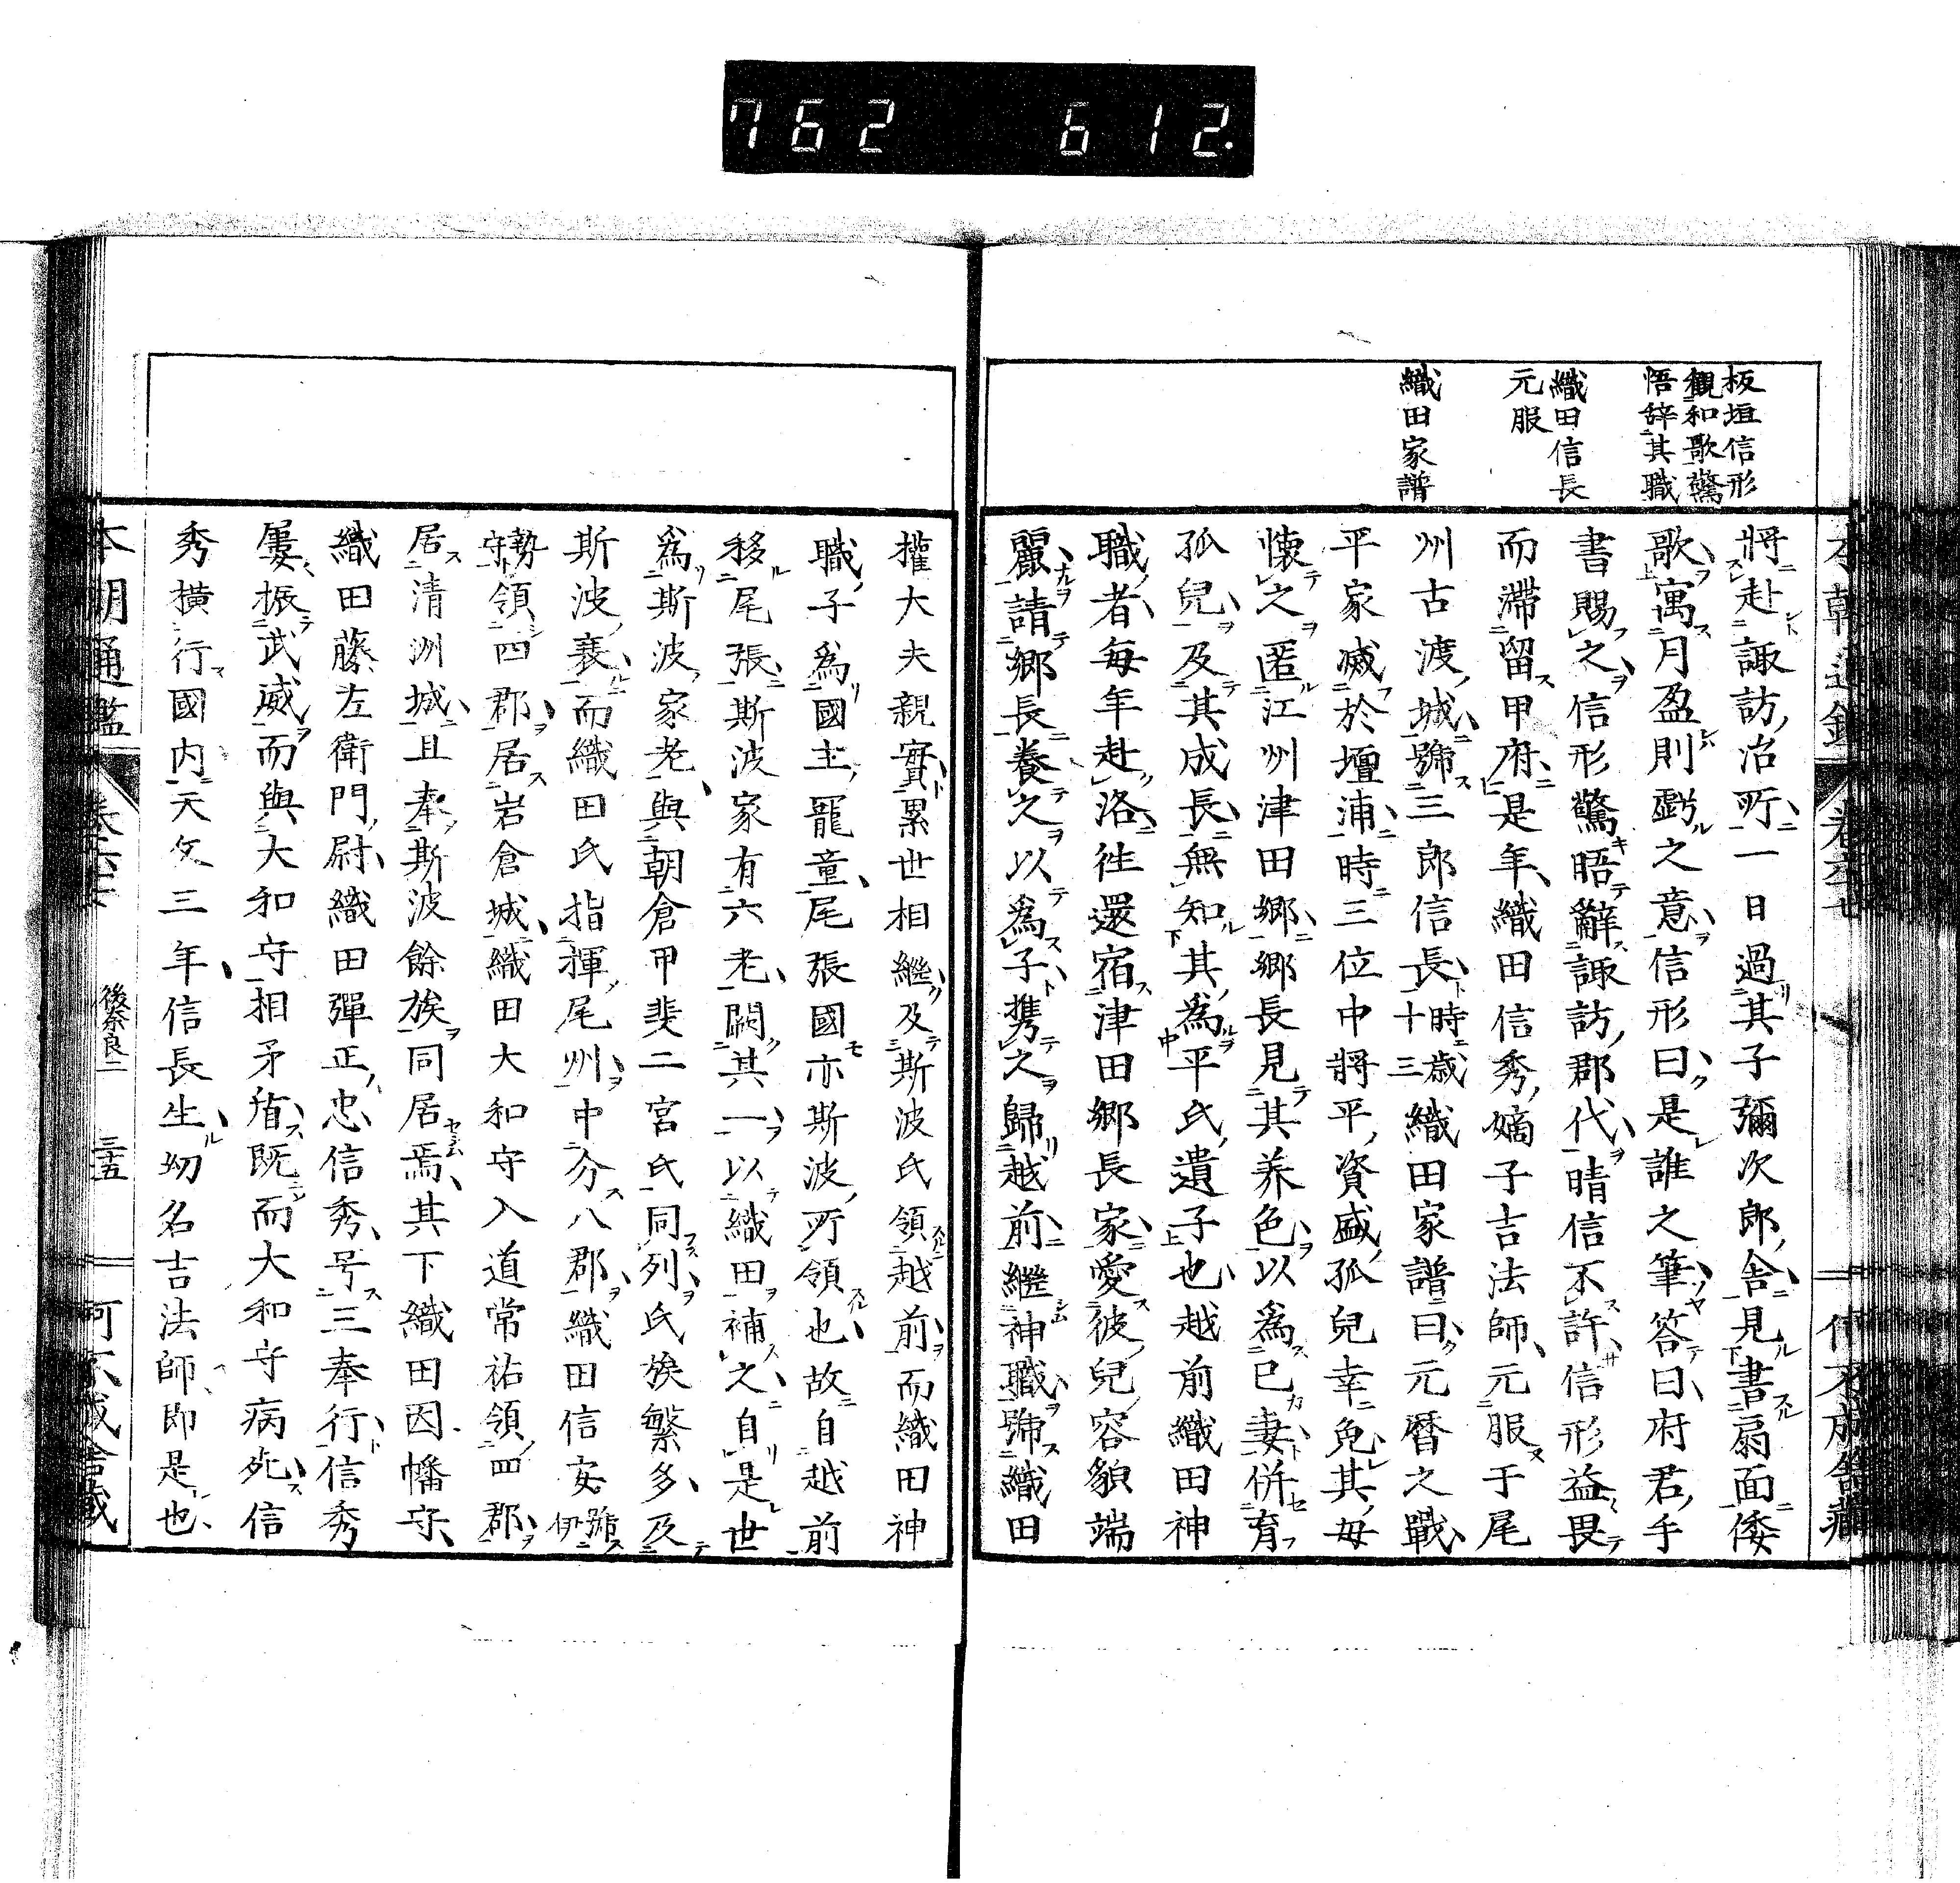 762 612.
板垣信形
觀和歌驚
悟辞其職
織田信長
元服
織田家譜
將赴諏訪治所一日過其子彌次郎舎見書扇面倭
歌寓月盈則虧之意信形曰是誰之筆答曰府君手
書賜之信形驚晤辭諏訪郡代晴信不許信形益畏
而滯留甲府是年織田信秀嫡子吉法師元服于尾
州古渡城號三郎信長時十三歳織田家譜曰元暦之戰
平家滅於壇浦時三位中將平資盛孤兒幸免其母
懐之匿江州津田郷郷長見其养色以爲已妻併育
孤兒及其成長無知其爲平氏遺子也越前織田神
職者毎年赴洛徃還宿津田郷長家愛彼兒容貌端
麗請郷長養之以爲子携之歸越前繼神職號織田
權大夫親實累世相繼及斯波氏領越前而織田神
職子爲國主寵童尾張國亦斯波所領也故自越前
移尾張斯波家有六老闕其一以織田補之自是世
爲斯波家老與朝倉甲斐二宮氏同列氏族繁多及
斯波衰而織田氏指揮尾州中分八郡織田信安號伊
勢守領四郡居岩倉城織田大和守入道常祐領四郡
居清洲城且奉斯波餘族同居焉其下織田因幡守
織田藤左衛門尉織田彈正忠信秀号三奉行信秀
屢振武威而與大和守相矛盾既而大和守病死信
秀横行國内天文三年信長生幼名吉法師即是也
本朝通鑑
後奈良二
三五